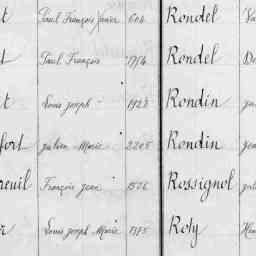 t Paul François Xavier 604 Rondel
t Paul François 1754 Rondel
t Louis joseph 1928 Rondin
fort julien Marie 2205 Rondin
reuil François jean 1506 Rossignol
r Louis joseph Marie 1375 Roty